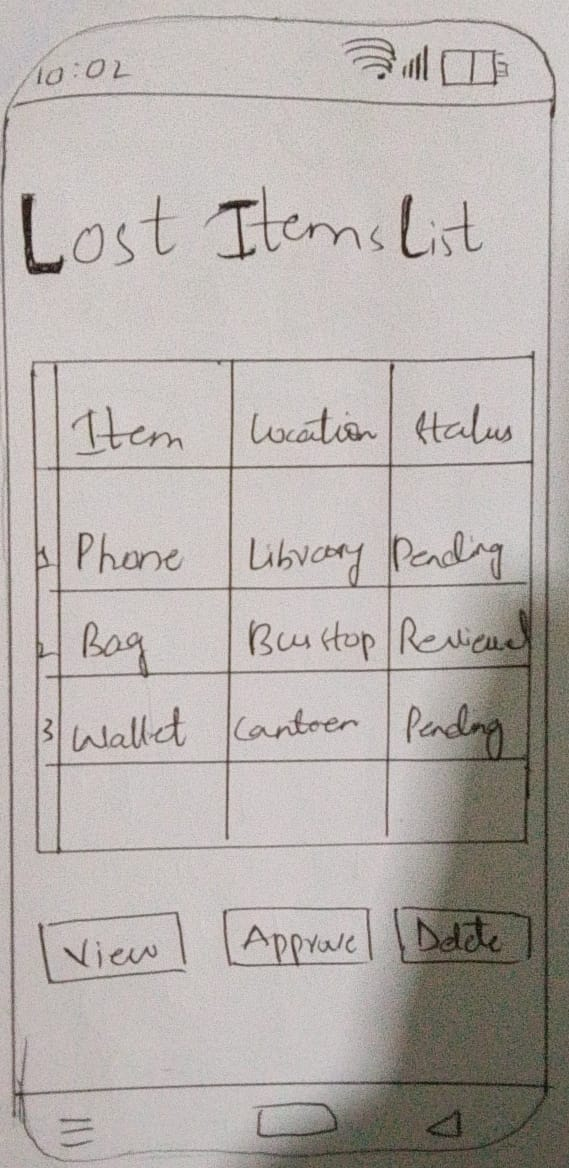 10:02
Lost Items List
Item Location Status
1 Phone Library Pending
2 Bag Bus stop Reviewed
3 Wallet Canteen Pending
View Approve Delete